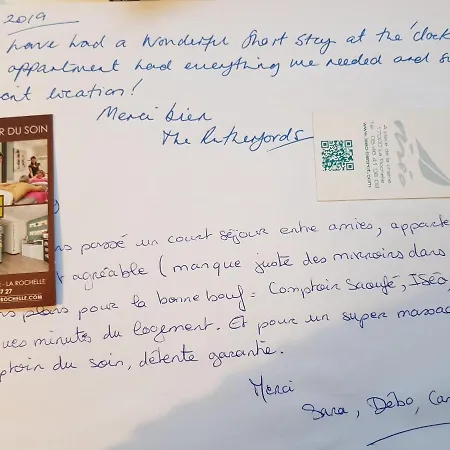 2019
have had a wonderful short stay at the 'clock
appartment had everything we needed and su
ent location!
Merci bien
The Rutherfords
R DU SOIN
- LA ROCHELLE
7 27
ROCHELLE.COM
iséo
17000 La Rochelle
passé un court séjour entre amies, apparte
agréable (manque juste des miroirs dans
plans pour la bonne bouf : Comptoir Saoufé, Iséo,
ques minutes du logement. Et pour un super massa
ptoir du soin, détente garantie.
Merci
Sara, Débo, Cam